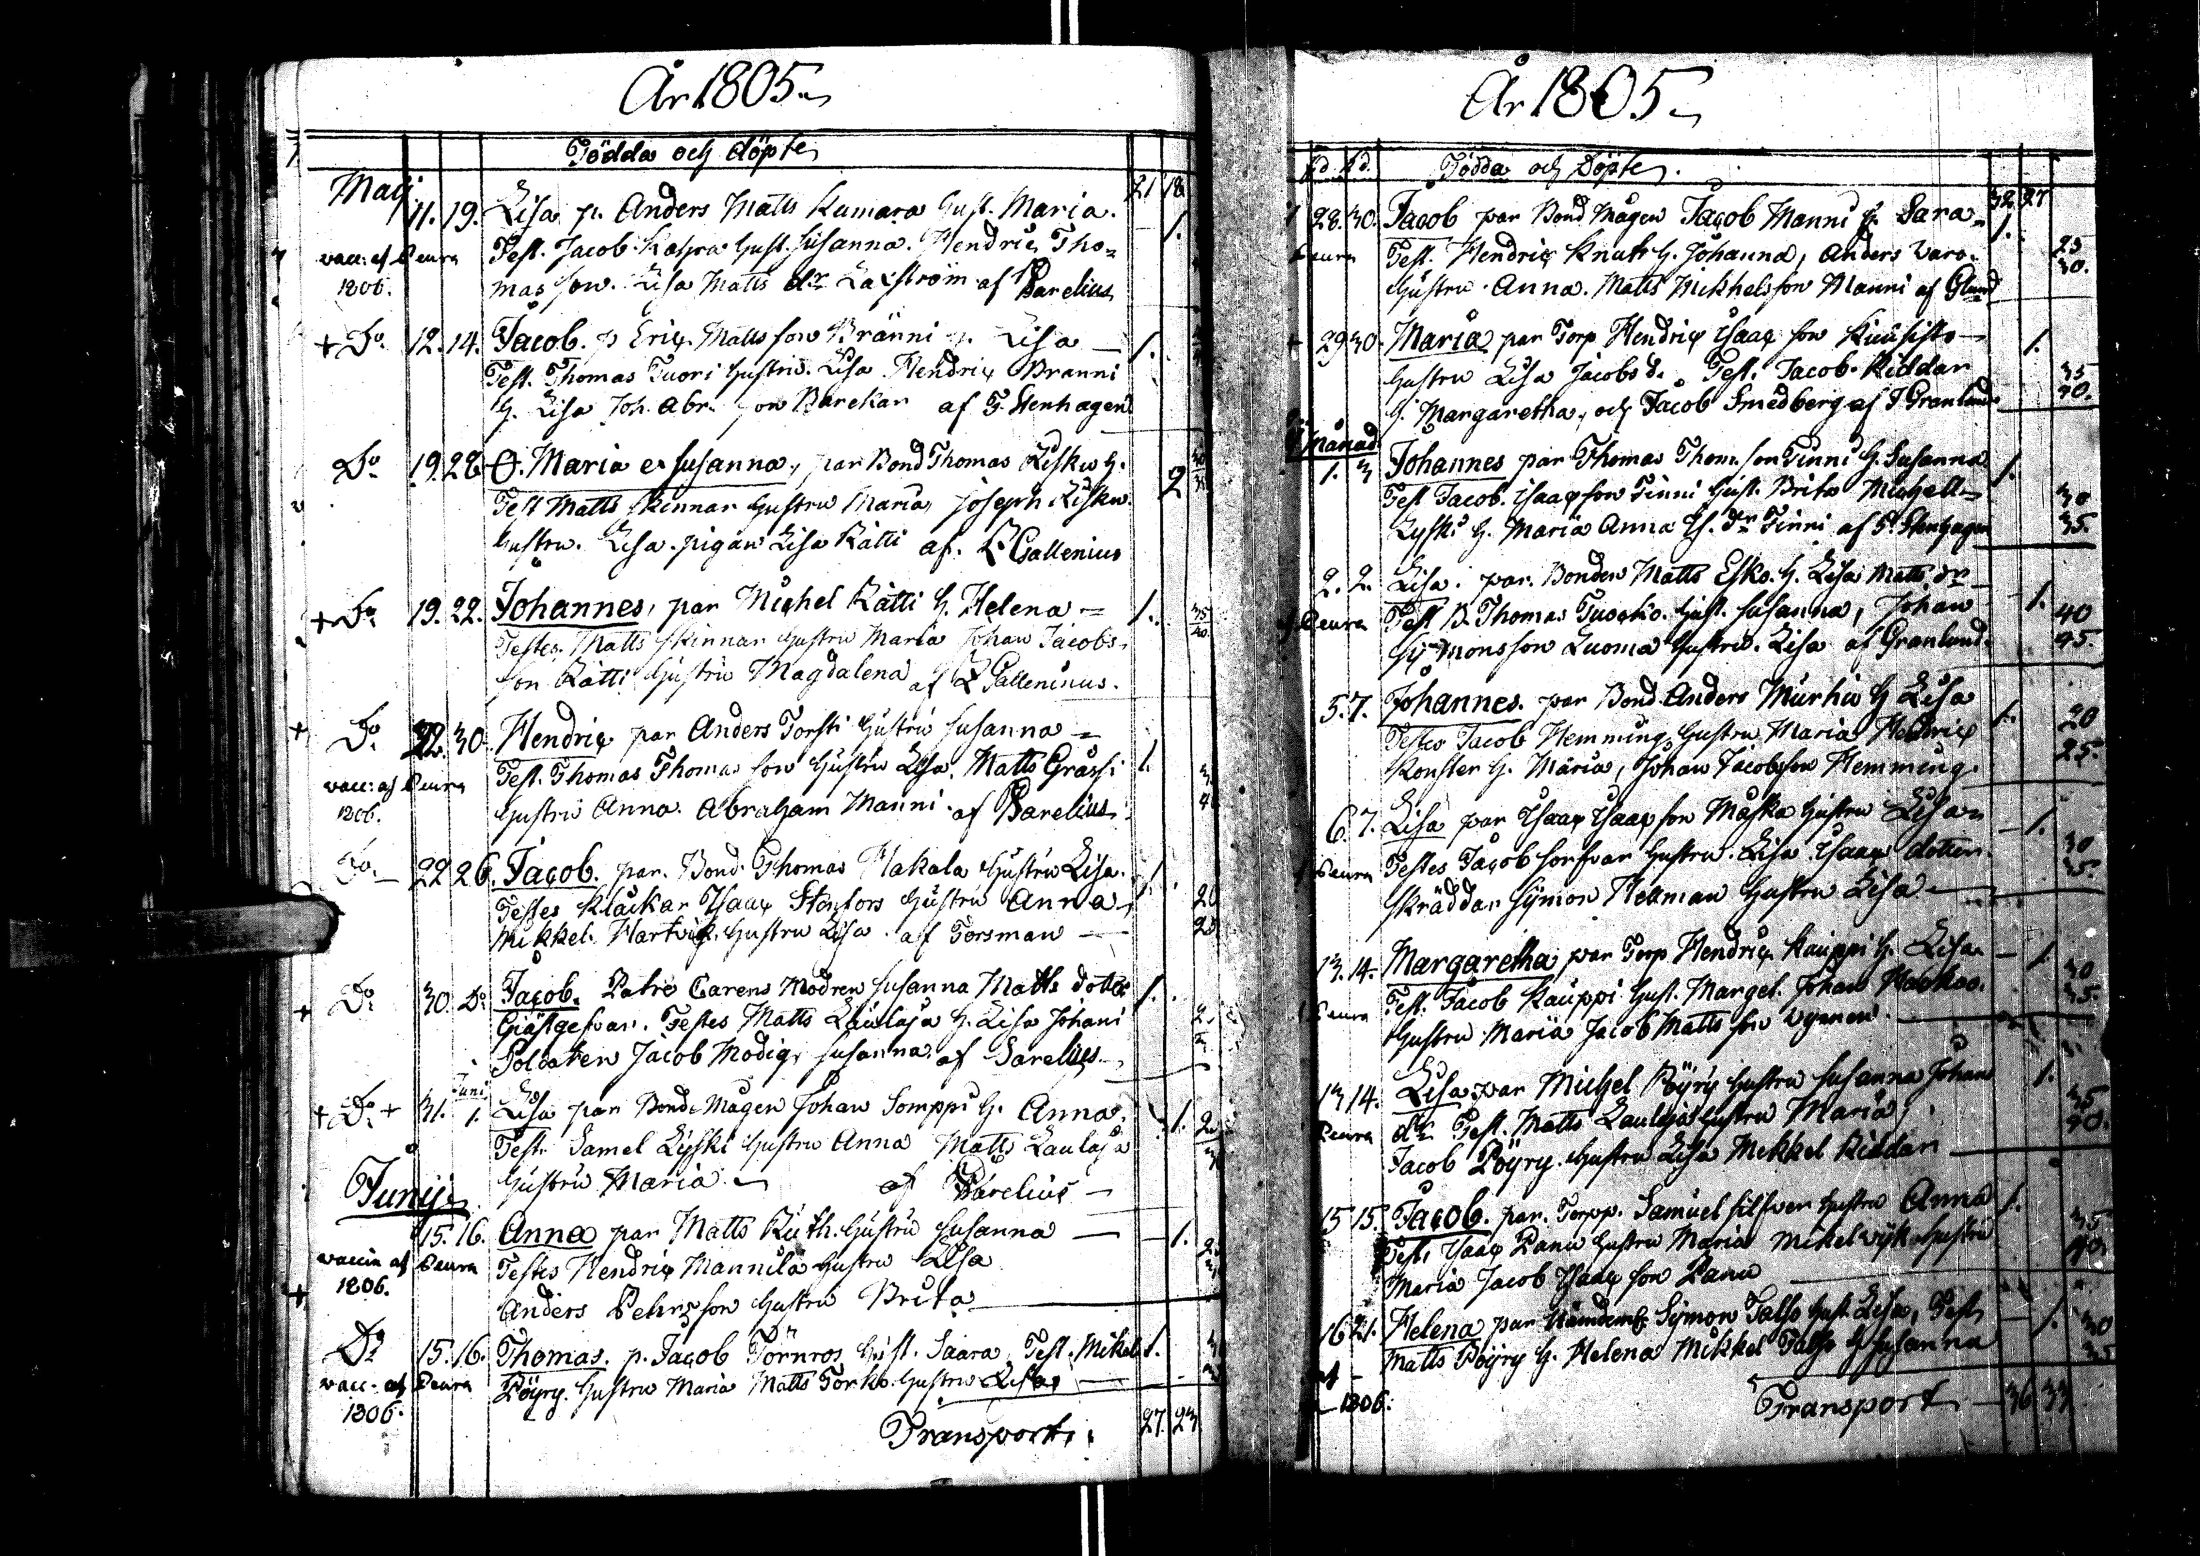 År 1805.
Födda och döpte
Maij 21 18
11. 19. Lisa p. Anders Matts Kamara Hust. Maria. 1.
vacc: af Peura Test. Jacob Hust. Susanna. Hendric Tho-
1806. mas son. Lisa Matts dr Laxström af Barelius
+ Do 12. 14. Jacob. p Eric Matts son Bränni h. Lisa 1.
Test. Thomas Tuori hustru. Lisa Hendric Bränni
H. Lisa Joh. Abr. son Barekar af T. Stenhagen
Do 19. 28 O. Maria e Susanna, par Bond Thomas Liski H. 2
Test Matts Skinnar hustru Maria, Joseph Liski
hustru. Lisa. pigan Lisa Rätti af. L. Gallenius
+ Do 19. 22. Johannes, par Michel Rätti H. Helena 1. 35
Testes. Matts Skinnar hustru Maria Johan Jacobs- 40.
son Rätti hustru Magdalena af L Gallenius.
+ Do 22. 30. Hendric par Anders Torsti hustru Susanna
vacc: af Peura Test. Thomas Thomas son hustru Lisa. Matts Gråssi 1.
1806. hustru Anna. Abraham Manni af Barelius
Do 22 26. Jacob. par. Bond Thomas Hakala hustru Lisa. 1.
Testes Klåckar Isaac Stenfors hustru Anna 20
Mikkel Hartvik. hustru Lisa af Forsman 25
+ Do 30. Do Jacob. Patre Carens Modren Susanna Matts doter 1.
Gästgefvar. Testes Matts Laulaja H. Lisa Johani
Soldaten Jacob Modig, Susanna af Barelius
Juni
+ Do + 31. 1. Lisa par Bond Mågen Johan Somppi H. Anna 1.
Test. Samel Lyski hustru Anna Matts Laulaja
Junij hustru Maria af Barelius
15. 16. Anna par Matts Ruth. hustru Susanna 1.
vaccin af Peura Testes Hendric Mannila hustru Lisa
1806. Anders Pehrsson hustru Brita
Do 15. 16. Thomas. p. Jacob Törnros hust. Saara, Test. Mikel 1.
vacc. af Peura Pöyry. hustru Maria Matts Torko. hustru Lisa
1806.
Transport 27. 23
År 1805
Födda och Döpte
32 27
28. 30. Jacob par Bond Mågen Jacob Manni H. Sara 1.
Peura Test. Hendric Knutr H. Johanna, Anders Varo. 25
hustru Anna. Matts Mikhelsson Manni af Glund 30.
+ 29 30. Maria par Torp Hendric Isaac son Kiusisto 1.
hustru Lisa Jacobs d. Test. Jacob Riddar 35
H. Margaretha, och Jacob Smedberg af J Granlund 40.
Månad
1. 3 Johannes par Thomas Thom. son Finni H. Susanna 1.
Test Jacob. Isaacson Finni hust. Brita Michell 30
Lyski H. Maria Anna Is. dr Finni af S. Stenhagen 35.
2. 2. Lisa. par. Bonden Matts Esko. H. Lisa Matts dr 1.
af Peura Test B. Thomas Tuosko. hust. Susanna, Johan 40
Sijmonsson Luoma hustru. Lisa af Granlund 45.
5. 7. Johannes. par Bond Anders Murhu H Lisa 1.
Testes Jacob Hemming hustru Maria Hendric 20
Konster H. Maria, Johan Jacobsson Hemming 25.
6. 7. Lisa par Isaac Isaac son Måska hustru Lisa 1.
Peura Testes Jacob Sorfvar hustru. Lisa Isaac dotter 30
Skräddar Symon Hellman hustru Lisa 35.
13. 14. Margaretha par Torp Hendric Kauppi H. Lisa 1.
Peura Test. Jacob Kauppi hust. Marget. Johan 30
hustru Maria Jacob Matts son 35.
13 14. Lisa par Michel Pöyry hustru Susanna Johans 1.
Peura dr. Test. Matts Laulaja hustru Maria 35
Jacob Pöyry. hustru Lisa Mikkel Riddar 40.
15 15. Jacob. par. Torpp. Samuel Silfver hustru Anna 1.
Test. Isaac Panu hustru Maria Mikel hustru 35
Maria Jacob Isaac son Panu 40
16 21. Helena par Symon Talso hust. Lisa, Test 1. 30
Matts Pöyry H. Helena Mikkel Talso H Susanna 35
1806.
Transport 36 33